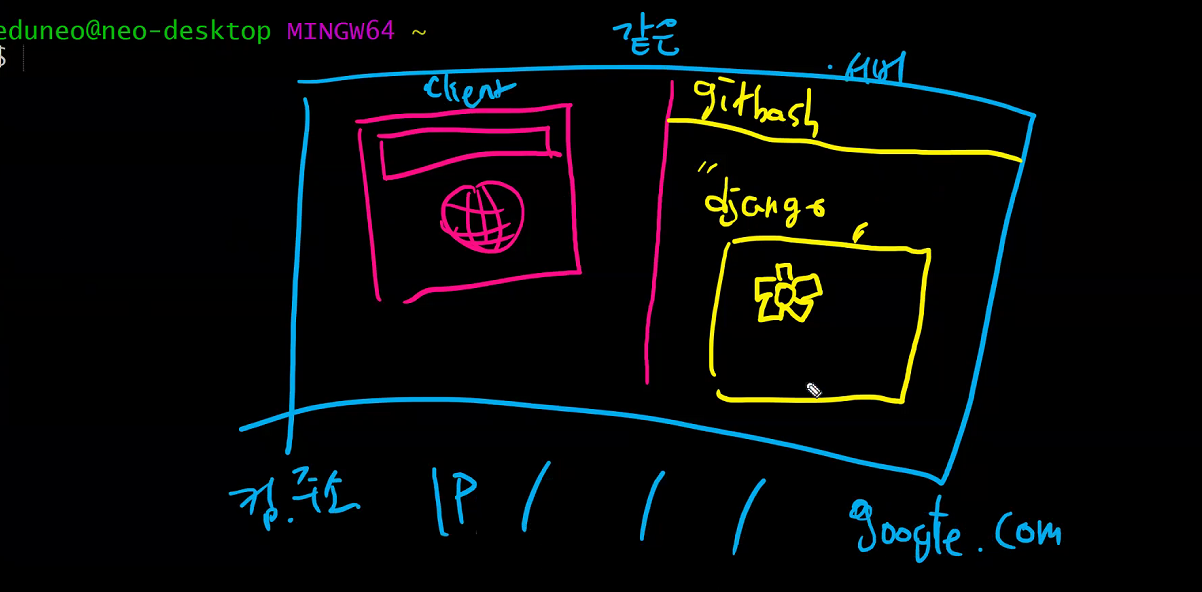 eduneo@neo-desktop MINGW64 ~
$
같은
client
· 서버
gitbash
"django
IP / / /
google.com